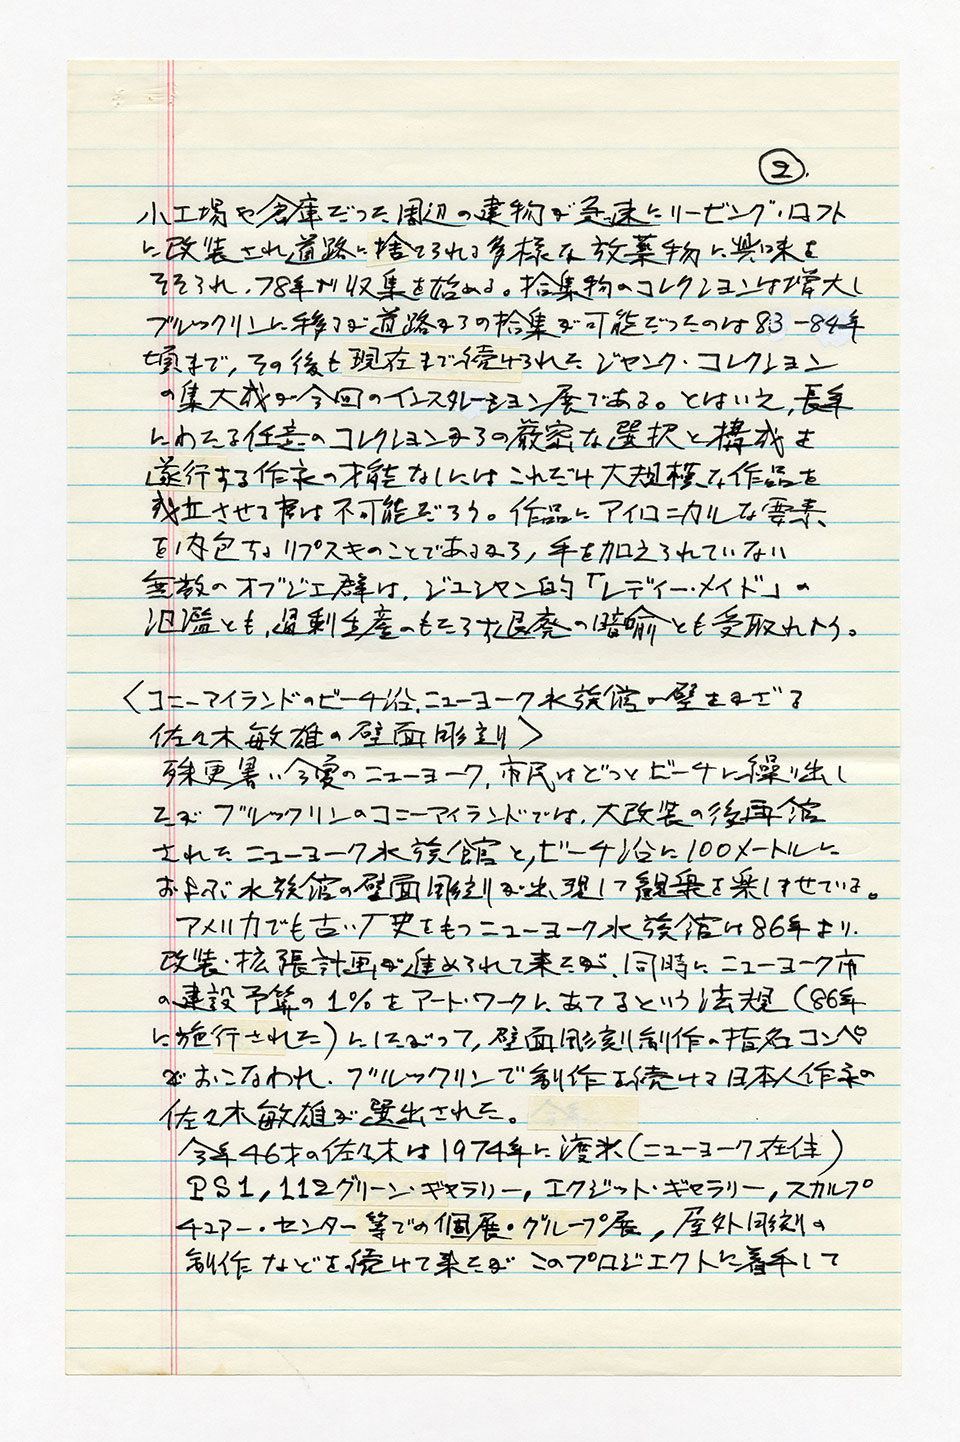 ②.
小工場や倉庫だった周辺の建物が急速にリービング・ロフト
に改装され道路に捨てられる多様な放棄物に興味を
そそられ、78年から収集を始める。拾集物のコレクションは増大し
ブルックリンに移るが道路からの拾集が可能だったのは83－84年
頃まで、その後も現在まで続けられたジャンク・コレクション
の集大成が今回のインスタレーション展である。とはいえ、長年
にわたる任意のコレクションからの厳密な選択と構成を
遂行する作家の才能なしにはこれだけ大規模な作品を
成立させる事は不可能だろう。作品にアイロニカルな要素
を内包するリプスキのことであるから、手を加えられていない
無数のオブジェ群は、デュシャン的「レディー・メイド」の
氾濫とも、過剰生産のもたらす退廃の暗喩とも受取れよう。
〈コニーアイランドのビーチ沿、ニューヨーク水族館の壁をかざる
佐々木敏雄の壁面彫刻〉
殊更暑い今夏のニューヨーク、市民はどっとビーチに繰り出し
たが ブルックリンのコニーアイランドでは、大改装の後再館
されたニューヨーク水族館と、ビーチ沿に100メートルに
およぶ水族館の壁面彫刻が出現して観衆を楽しませている。
アメリカでも古い歴史をもつニューヨーク水族館は86年より、
改装・拡張計画が進められて来たが、同時にニューヨーク市
の建設予算の1%をアート・ワークにあてるという法規（86年
に施行された）にしたがって、壁面彫刻制作の指名コンペ
がおこなわれ、ブルックリンで制作を続ける日本人作家の
佐々木敏雄が選出された。
今年46才の佐々木は1974年に渡米（ニューヨーク在住）
PS1, 112グリーン・ギャラリー, エクジット・ギャラリー, スカルプ
チュアー・センター等での個展・グループ展, 屋外彫刻の
制作などを続けて来たが このプロジェクトに着手して